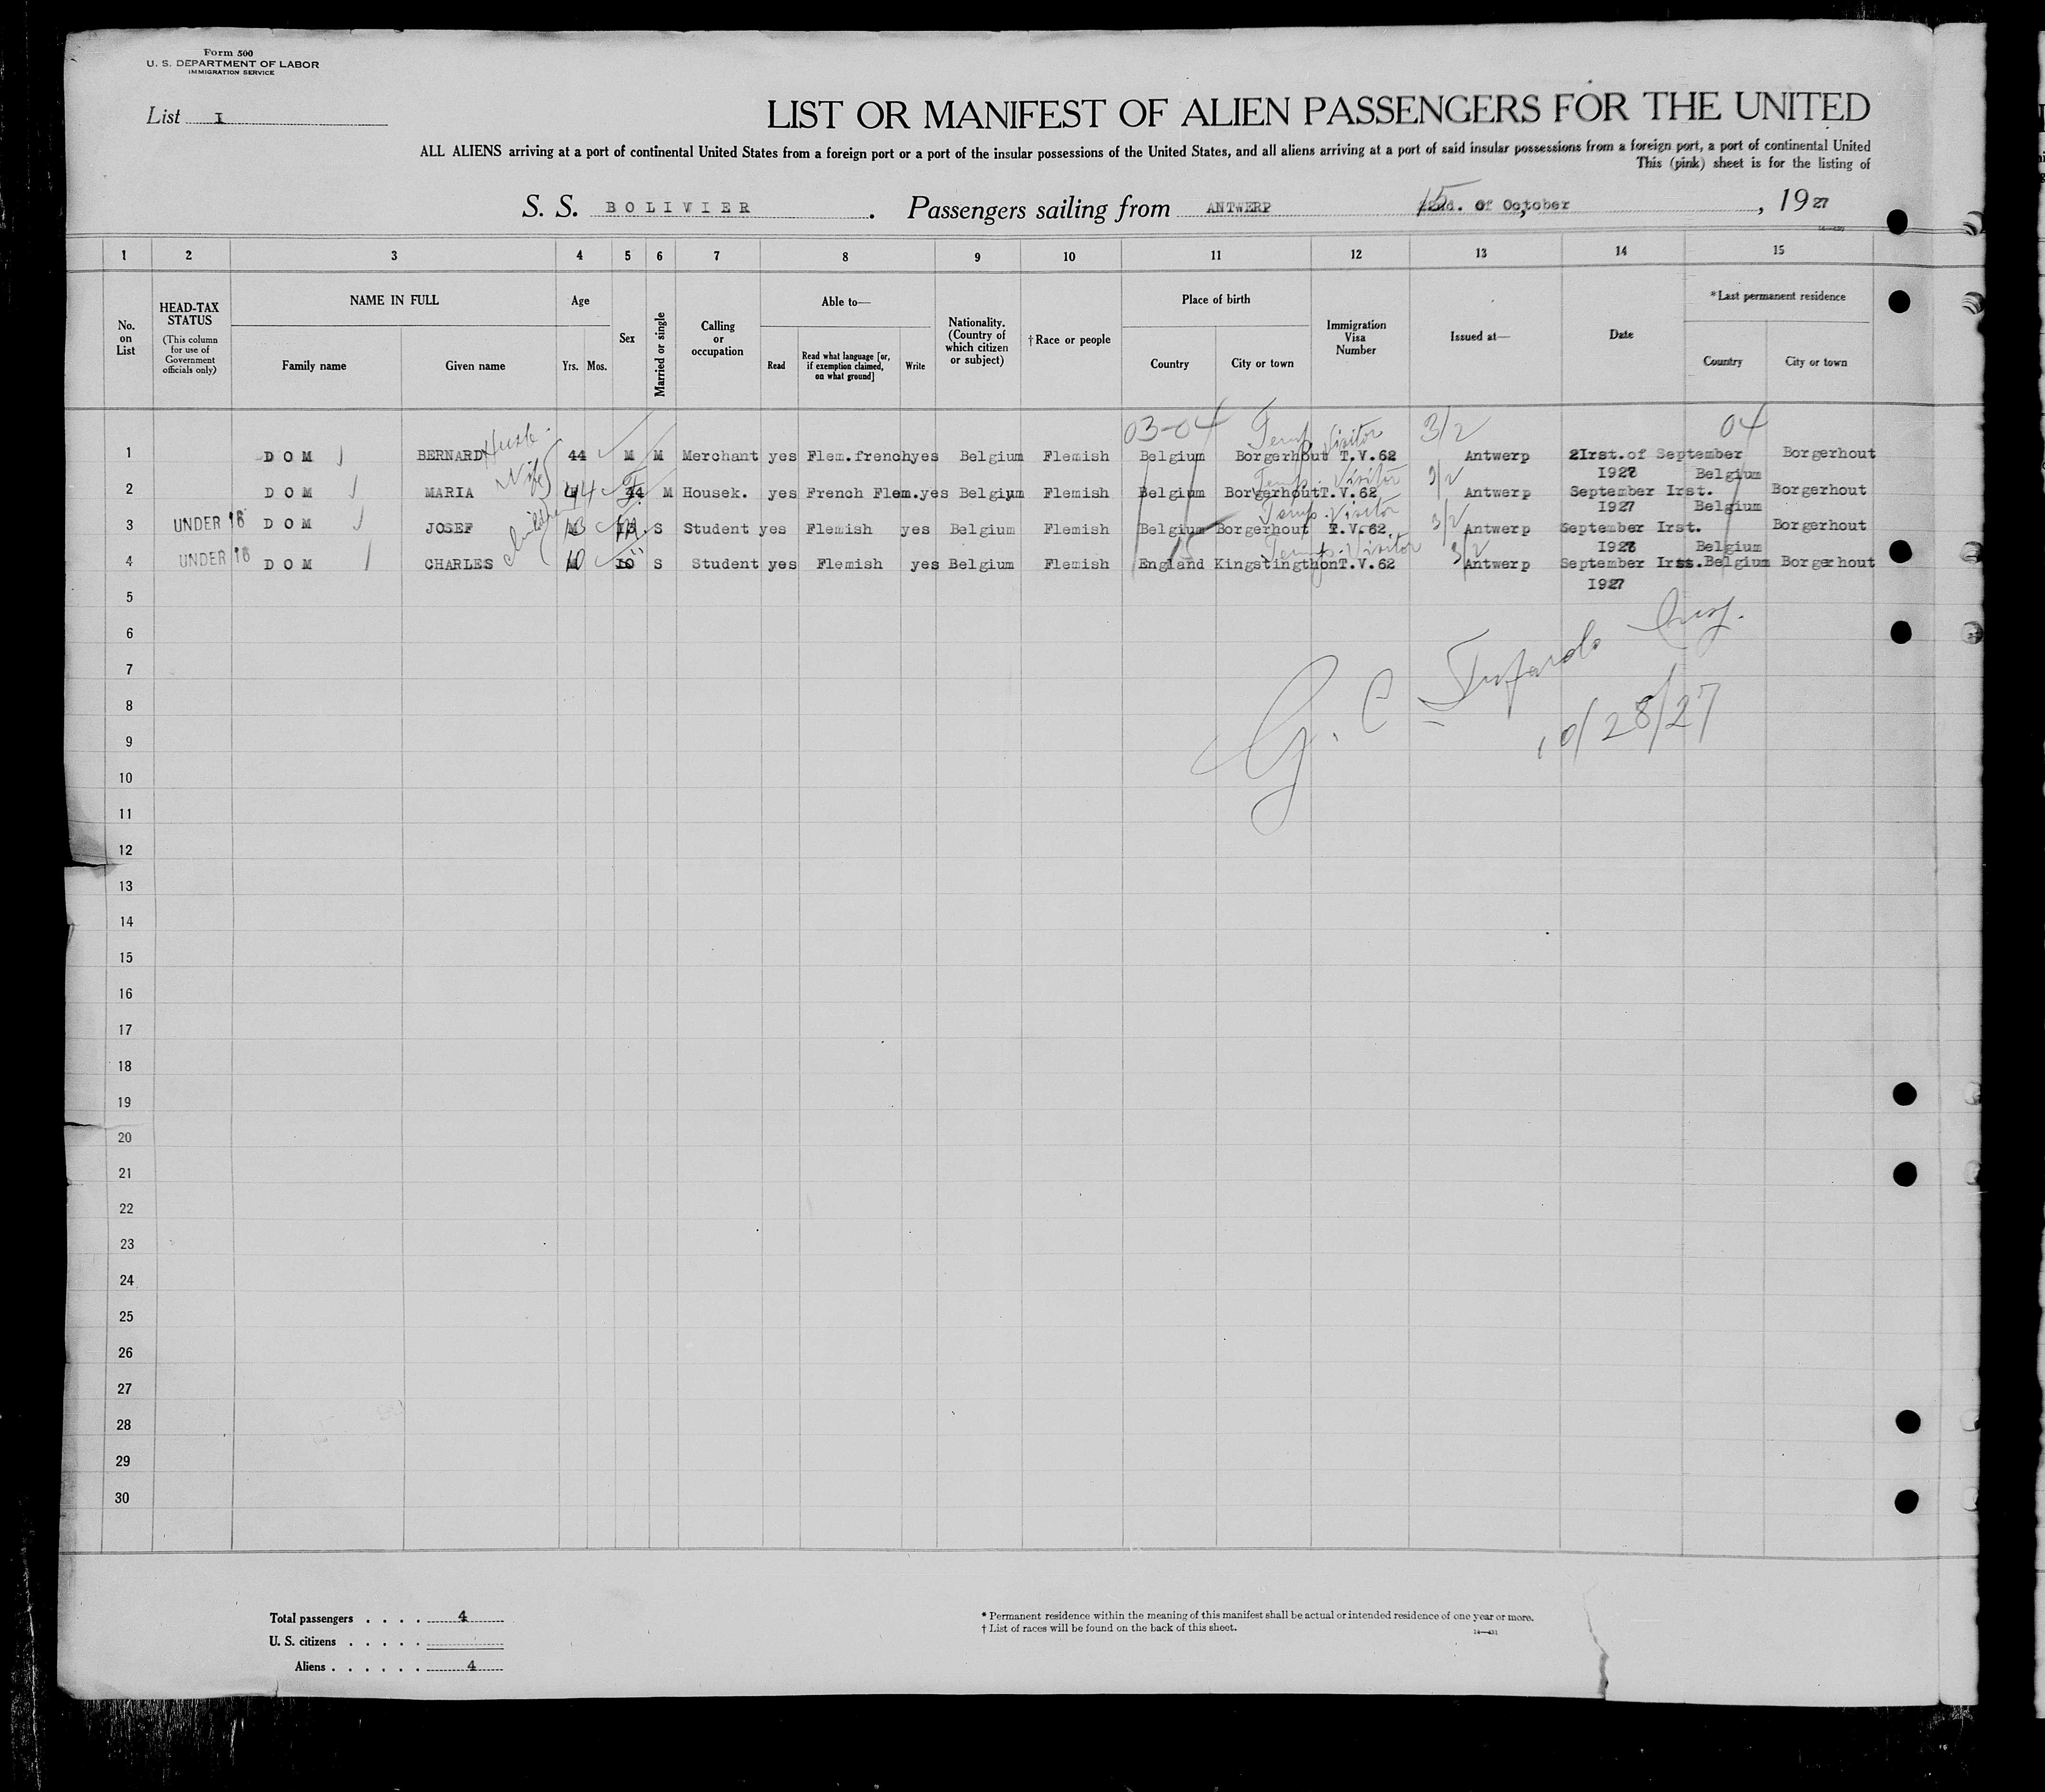 Form 500
U. S. DEPARTMENT OF LABOR
IMMIGRATION SERVICE
List I
LIST OR MANIFEST OF ALIEN PASSENGERS FOR THE UNITED
ALL ALIENS arriving at a port of continental United States from a foreign port or a port of the insular possessions of the United States, and all aliens arriving at a port of said insular possessions from a foreign port, a port of continental United
This (pink) sheet is for the listing of
S. S. BOLIVIER . Passengers sailing from ANTWERP 15 of October , 1927
1 2 3 4 5 6 7 8 9 10 11 12 13 14 15
No. on List
HEAD-TAX STATUS
(This column for use of Government officials only)
NAME IN FULL
Family name Given name
Age
Yrs. Mos.
Sex
Married or single
Calling or occupation
Able to—
Read
Read what language [or, if exemption claimed, on what ground]
Write
Nationality. (Country of which citizen or subject)
†Race or people
Place of birth
Country City or town
Immigration Visa Number
Issued at—
Date
*Last permanent residence
Country City or town
03-04 Temp. Visitor 3/2 04
1 DOM BERNARD Husb. 44 M M Merchant yes Flem.french yes Belgium Flemish Belgium Borgerhout T.V.62 Antwerp 2Irst.of September Borgerhout
Temp. Visitor 3/2 I927 Belgium
2 DOM MARIA Wife 44 F M Housek. yes French Flem. yes Belgium Flemish Belgium Borgerhout T.V.62 Antwerp September Irst. Borgerhout
Temp. Visitor 3/2 I927 Belgium
3 UNDER 16 DOM JOSEF children 13 M S Student yes Flemish yes Belgium Flemish Belgium Borgerhout T.V.62. Antwerp September Irst. Borgerhout
Temp. Visitor 3/2 I927 Belgium
4 UNDER 16 DOM CHARLES 10 " S Student yes Flemish yes Belgium Flemish England Kingstingthon T.V.62 Antwerp September Irst. Belgium Borgerhout
I927
5
6
7
8
9
10/28/27
10
11
12
13
14
15
16
17
18
19
20
21
22
23
24
25
26
27
28
29
30
Total passengers . . . . 4
U. S. citizens . . . . .
Aliens . . . . . . 4
* Permanent residence within the meaning of this manifest shall be actual or intended residence of one year or more.
† List of races will be found on the back of this sheet.